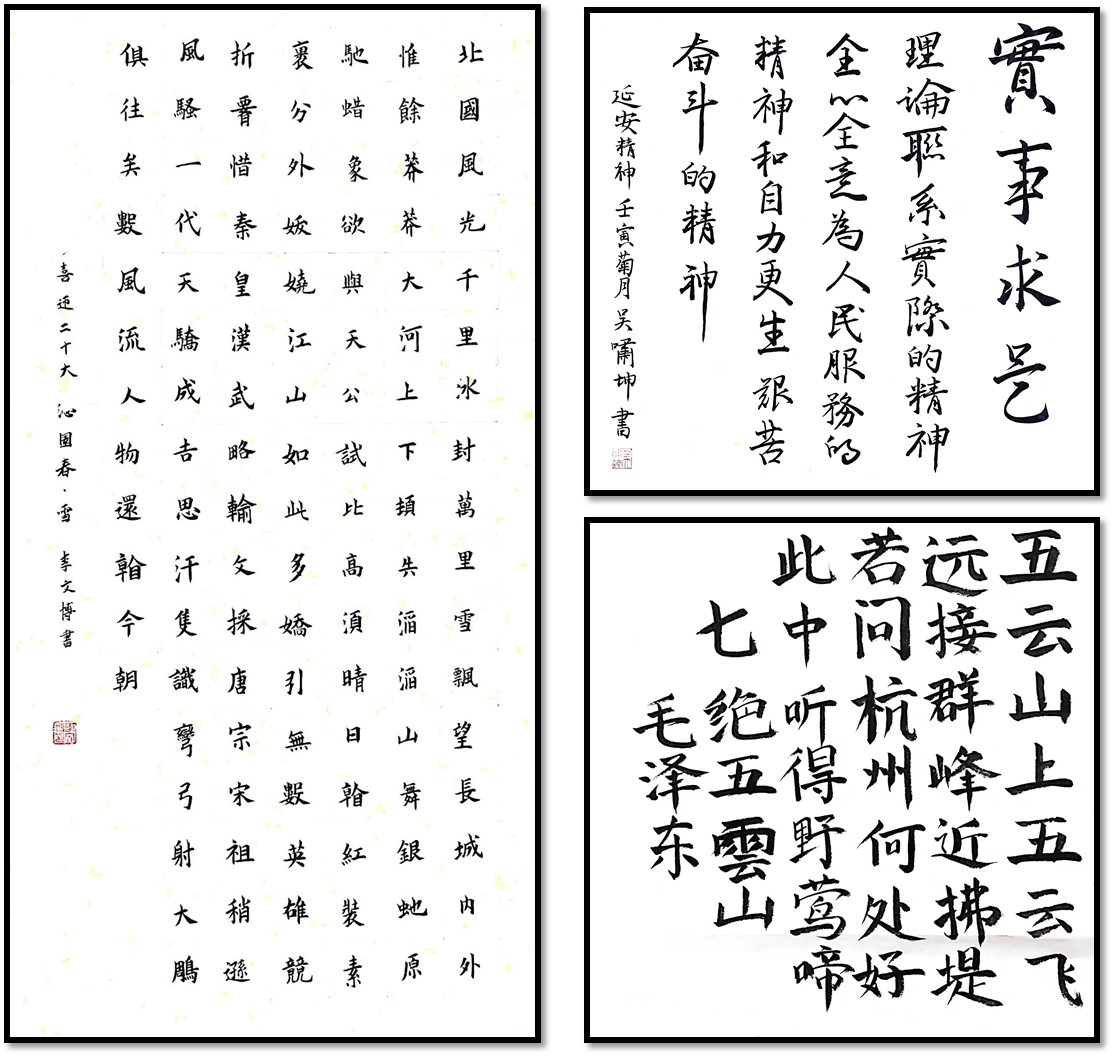 北國風光千里冰封萬里雪飄望長城內外
惟餘莽莽大河上下頓失滔滔山舞銀虵原
馳蜡象欲與天公試比高須晴日看紅裝素
裹分外妖嬈江山如此多嬌引無數英雄競
折腰惜秦皇漢武略輸文採唐宗宋祖稍遜
風騷一代天驕成吉思汗隻識彎弓射大鵰
俱往矣數風流人物還看今朝
喜迎二十大 沁園春·雪 李文博書
實事求是
理論聯系實際的精神
全心全意為人民服務的
精神和自力更生艱苦
奋斗的精神
延安精神 壬寅菊月 吴嘯坤書
五云山上五云飞
远接群峰近拂堤
若问杭州何处好
此中听得野莺啼
七绝五雲山
毛泽东